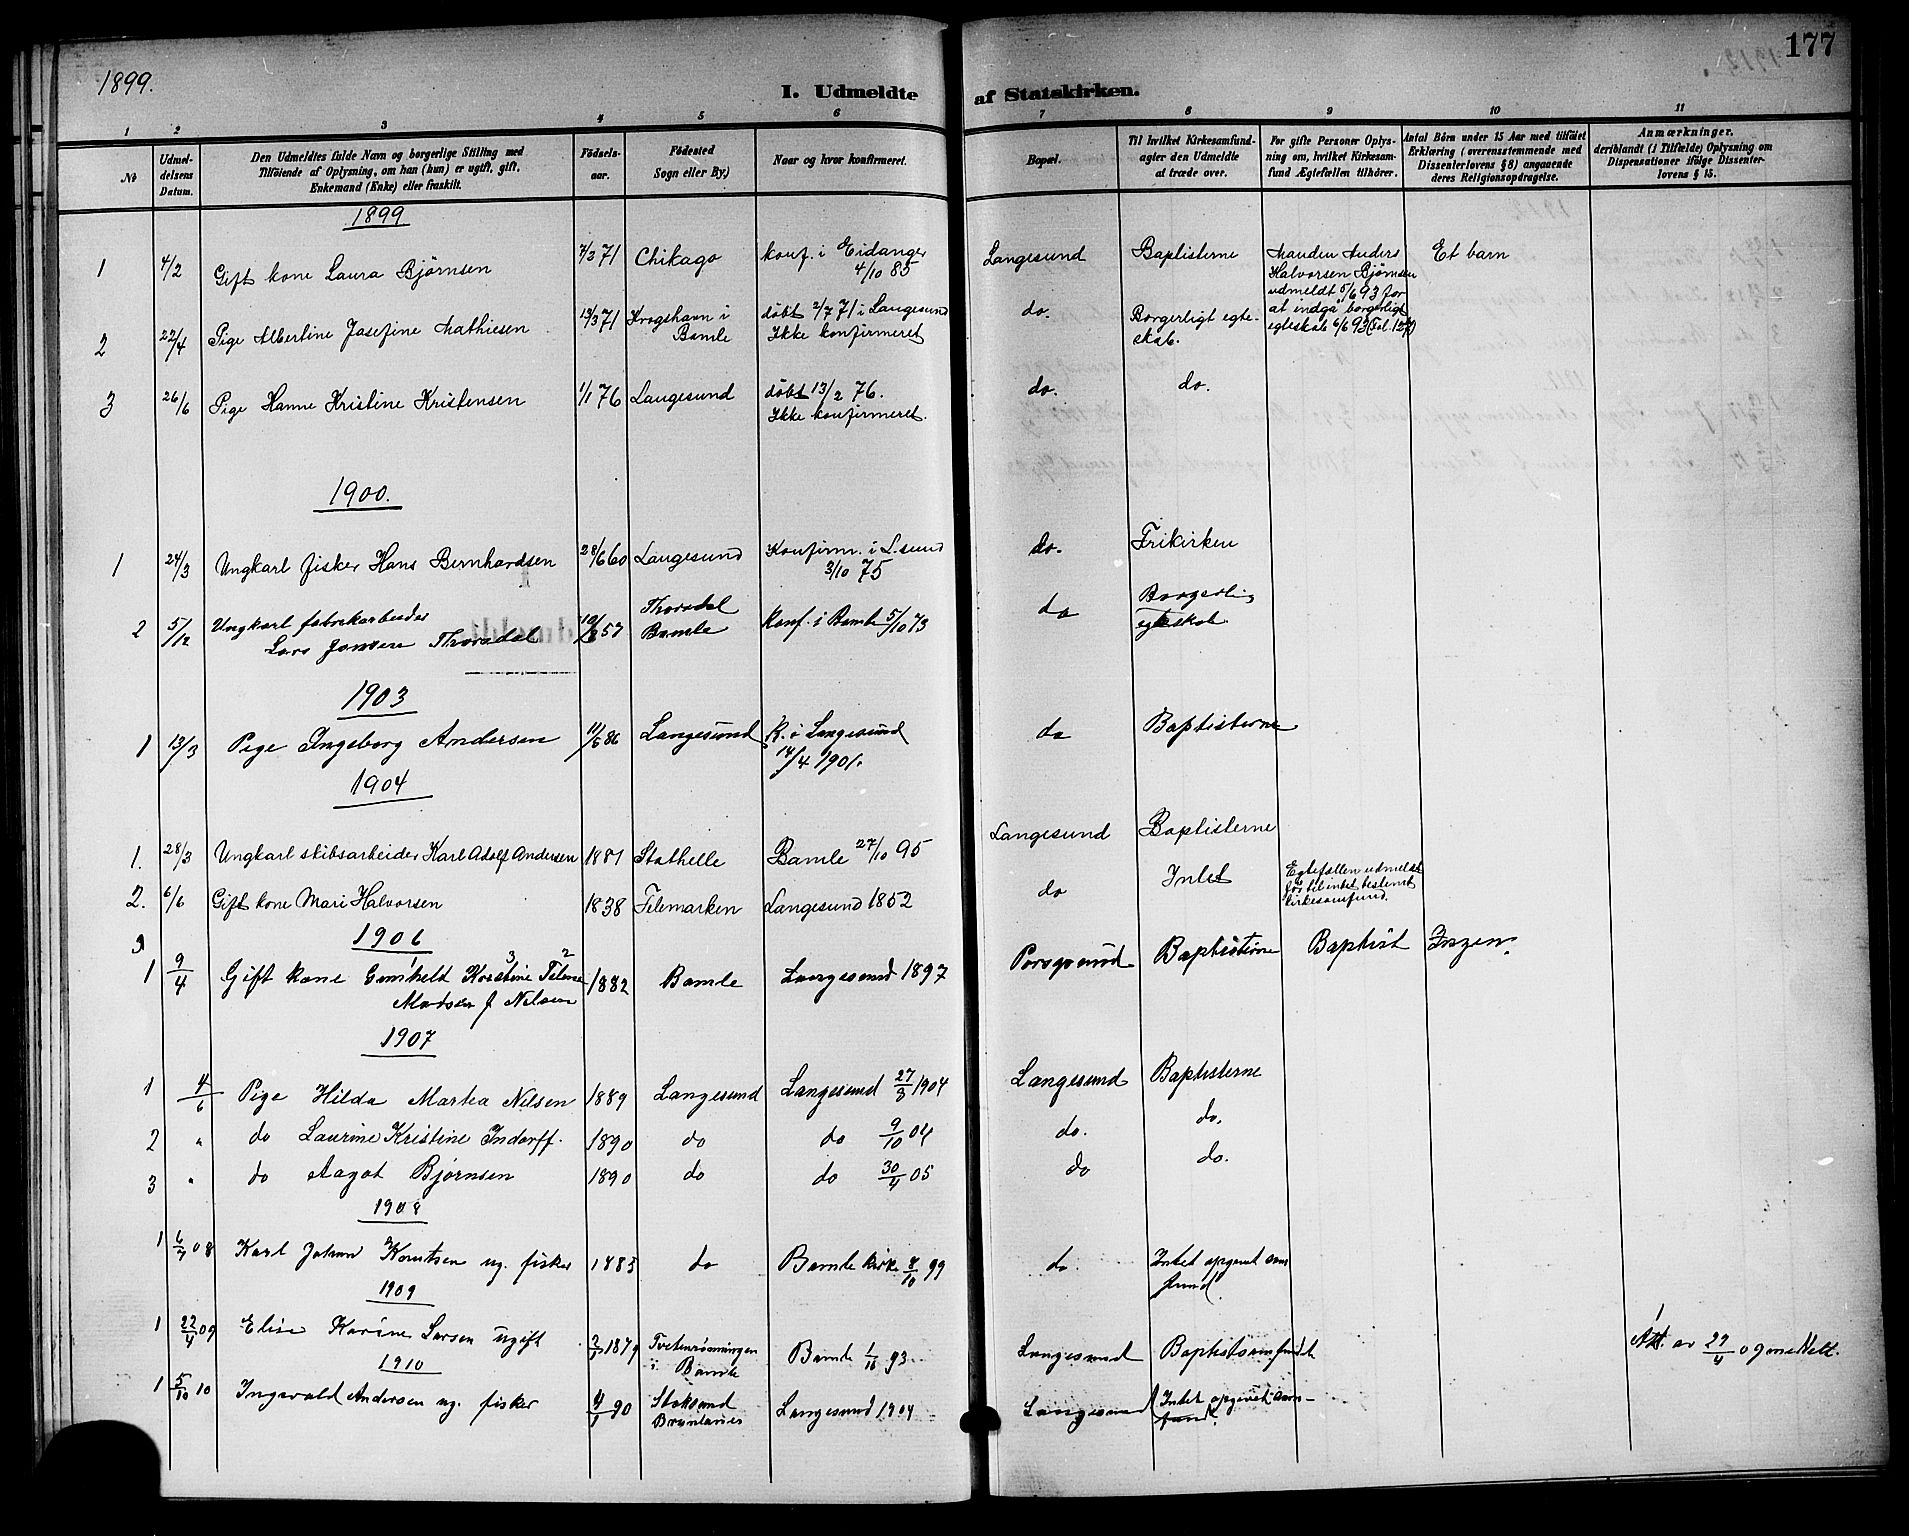 1899.
177
I. Udmeldte af Statskirken.
1 2 3 4 5 6 7 8 9 10 11
№
Udmel-
delsens
Datum.
Den Udmeldtes fulde Navn og borgerlige Stilling med
Tilföiende af Oplysning, om han (hun) er ugift, gift,
Enkemand (Enke) eller fraskilt.
Födsels-
aar.
Födested
Sogn eller By)
Naar og hvor konfirmeret.
Bopæl.
Til hvilket Kirkesamfund-
agter den Udmeldte
at træde over.
For gifte Personer Oplys-
ning om, hvilket Kirkesam-
fund Ægtefællen tilhörer.
Antal Börn under 15 Aar med tilföiet
Erklæring (overensstemmende med
Dissenterlovens § 8) angaaende
deres Religionsopdragelse.
Anmærkninger.
deriblandt (i Tilfælde) Oplysning om
Dispensationer ifölge Dissenter-
lovens § 15.
1899
1 4/2 Gift kone Laura Bjørnsen 71 Chikago konf. i Eidanger
4/10 85
Langesund Baptisterne Manden Anders
Halvorsen Bjørnsen
udmeldt 5/6 93 for
at indgå borgerligt
egteskab 6/6 93 (Fol. 127)
Et barn
2 22/4 Pige Albertine Josefine Mathiesen 13/3 71 Krogshavn i
Bamle
døbt 2/7 71 i Langesund
Ikke konfirmeret
do. Borgerligt egte-
skab.
3 26/6 Pige Hanne Kristine Kristensen 1/1 76 Langesund døbt 13/2 76.
Ikke konfirmeret.
do. do.
1900.
1 24/3 Ungkarl fisker Hans Bernhardsen 28/6 60 Langesund Konfirm. i L.sund
3/10 75
do. Frikirken
2 5/12 Ungkarl fabrikarbeider
Lars Jansen Thorsdal
57 Thorsdal
Bamle
Konf. i Bamle 5/10 73
do Borgerlig
egteskab.
1903
1 13/3 Pige Ingeborg Andersen 11/6 86 Langesund k. i Langesund
14/4 1901.
do Baptisterne
1904
1. 28/3 Ungkarl skibsarbeider Karl Adolf Andersen 1881 Stathelle Bamle 27/10 95 Langesund Baptisterne
2. 6/6 Gift kone Mari Halvorsen 1838 Telemarken Langesund 1852 do Intet Egtefællen udmeldt
før til intet bestemt
kirkesamfund.
1906
1 9/4 Gift kone Gunhild Kirstine Teline
Madsen f Nilsen
1882 Bamle Langesund 1897 Porsgrund Baptisterne Baptist Ingen.
1907
1 4/6 Pige Hilda Martea Nilsen 1889 Langesund Langesund 27/3 1904 Langesund Baptisterne
2 " do Laurine Kristine Indorff. 1890 do do 9/10 04 do. do.
3 " do Aagot Bjørnsen 1890 do do 30/4 05 do do.
1908
1 6/7 08 Karl Johan Knutsen ug. fisker 1883 do Bamle kirke 8/10 99 do Intet opgivet sam
fund.
1909
1 22/4 09 Elise Karine Larsen ugift 1879 Tvetenrønningen
i Bamle
Bamle 1/10 93. Langesund Baptistsamfundet Att. av 29/4 09 meddelt.
1910
1 5/10 10 Ingvald Andersen ug. fisker 90 Stoksund
Brunlanes
Langesund 1904 Langesund Intet opgivet sam-
fund.